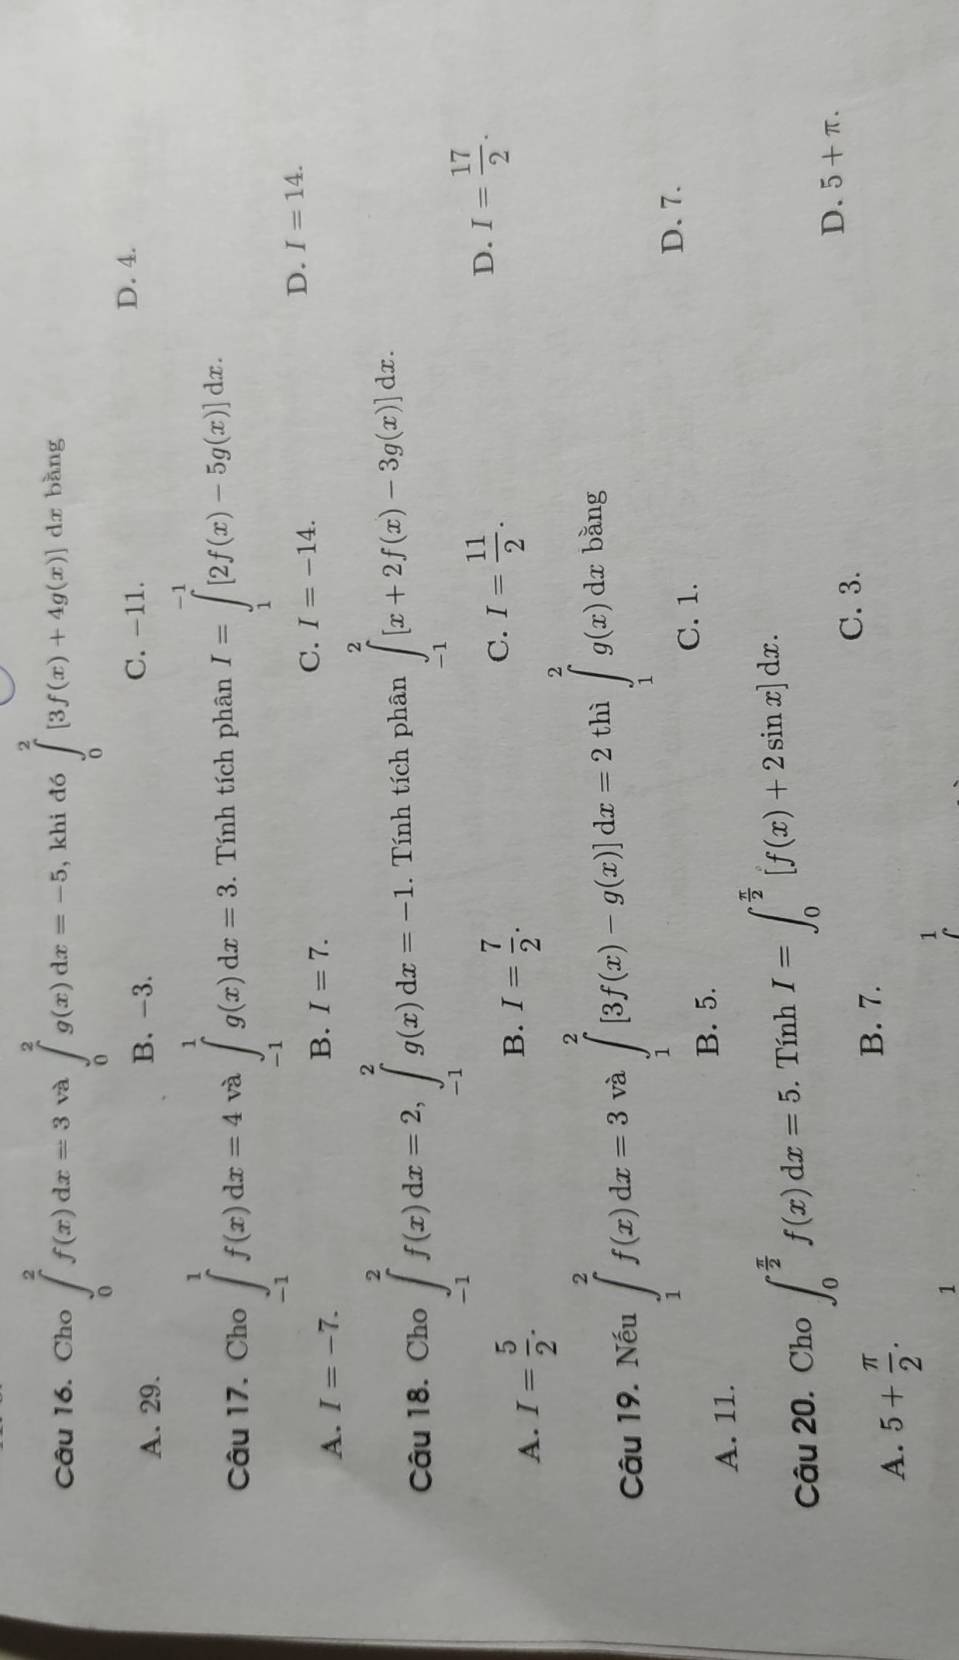 Câu 16. Cho ∫₀² f(x) dx = 3 và ∫₀² g(x) dx = −5, khi đó ∫₀² [3f(x) + 4g(x)] dx bằng
A. 29. B. −3. C. −11. D. 4.
Câu 17. Cho ∫₋₁¹ f(x) dx = 4 và ∫₋₁¹ g(x) dx = 3. Tính tích phân I = ∫₁⁻¹ [2f(x) − 5g(x)] dx.
A. I = −7. B. I = 7. C. I = −14. D. I = 14.
Câu 18. Cho ∫₋₁² f(x) dx = 2, ∫₋₁² g(x) dx = −1. Tính tích phân ∫₋₁² [x + 2f(x) − 3g(x)] dx.
A. I = 5/2. B. I = 7/2. C. I = 11/2. D. I = 17/2.
Câu 19. Nếu ∫₁² f(x) dx = 3 và ∫₁² [3f(x) − g(x)] dx = 2 thì ∫₁² g(x) dx bằng
A. 11. B. 5. C. 1. D. 7.
Câu 20. Cho ∫₀^(π/2) f(x) dx = 5. Tính I = ∫₀^(π/2) [f(x) + 2 sin x] dx.
A. 5 + π/2. B. 7. C. 3. D. 5 + π.
1 1